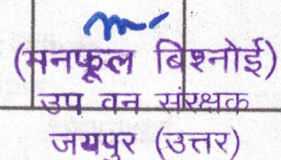 (मनफूल बिश्नोई)
उप वन संरक्षक
जयपुर (उत्तर)